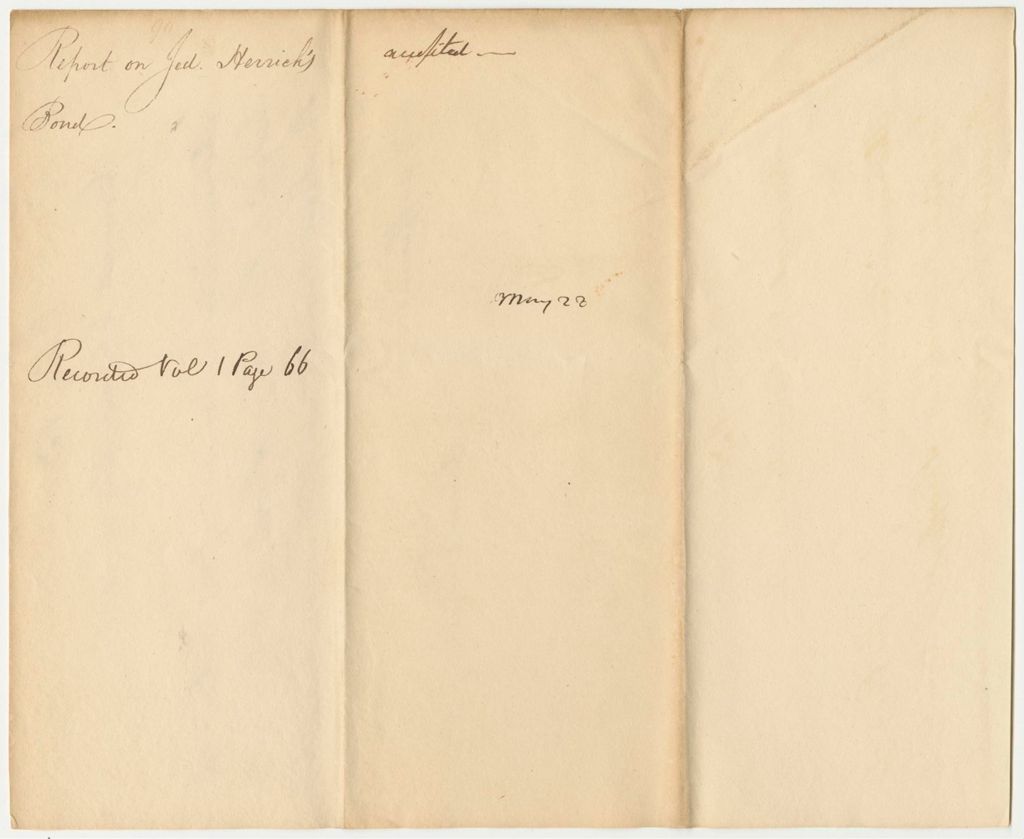 Report on Jed. Herrick's
Bond.
Recorded Vol 1 Page 66
accepted
May 22